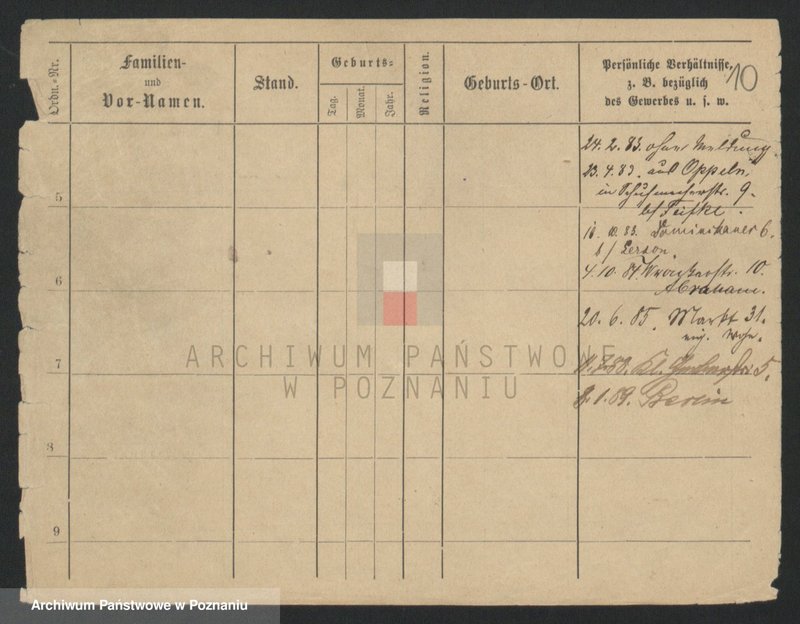 Ordn.-Nr.
Familien-
und
Vor-Namen.
Stand.
Geburts-
Tag.
Monat.
Jahr.
Religion.
Geburts-Ort.
Persönliche Verhältnisse,
z. B. bezüglich
des Gewerbes u. s. w.
10
24. 2. 83. ohne Meldung.
23. 4. 83. aus Oppeln,
in Schuhmacherstr. 9.
b/
5
10. 83. Dominikaner 6.
b/ Gerson.
4. 10. 84. 10.
Abraham.
6
20. 6. 85. Markt 31.
7
Kl. 5.
8. 1. 89. Berlin
8
9
ARCHIWUM PAŃSTWOWE
W POZNANIU
Archiwum Państwowe w Poznaniu